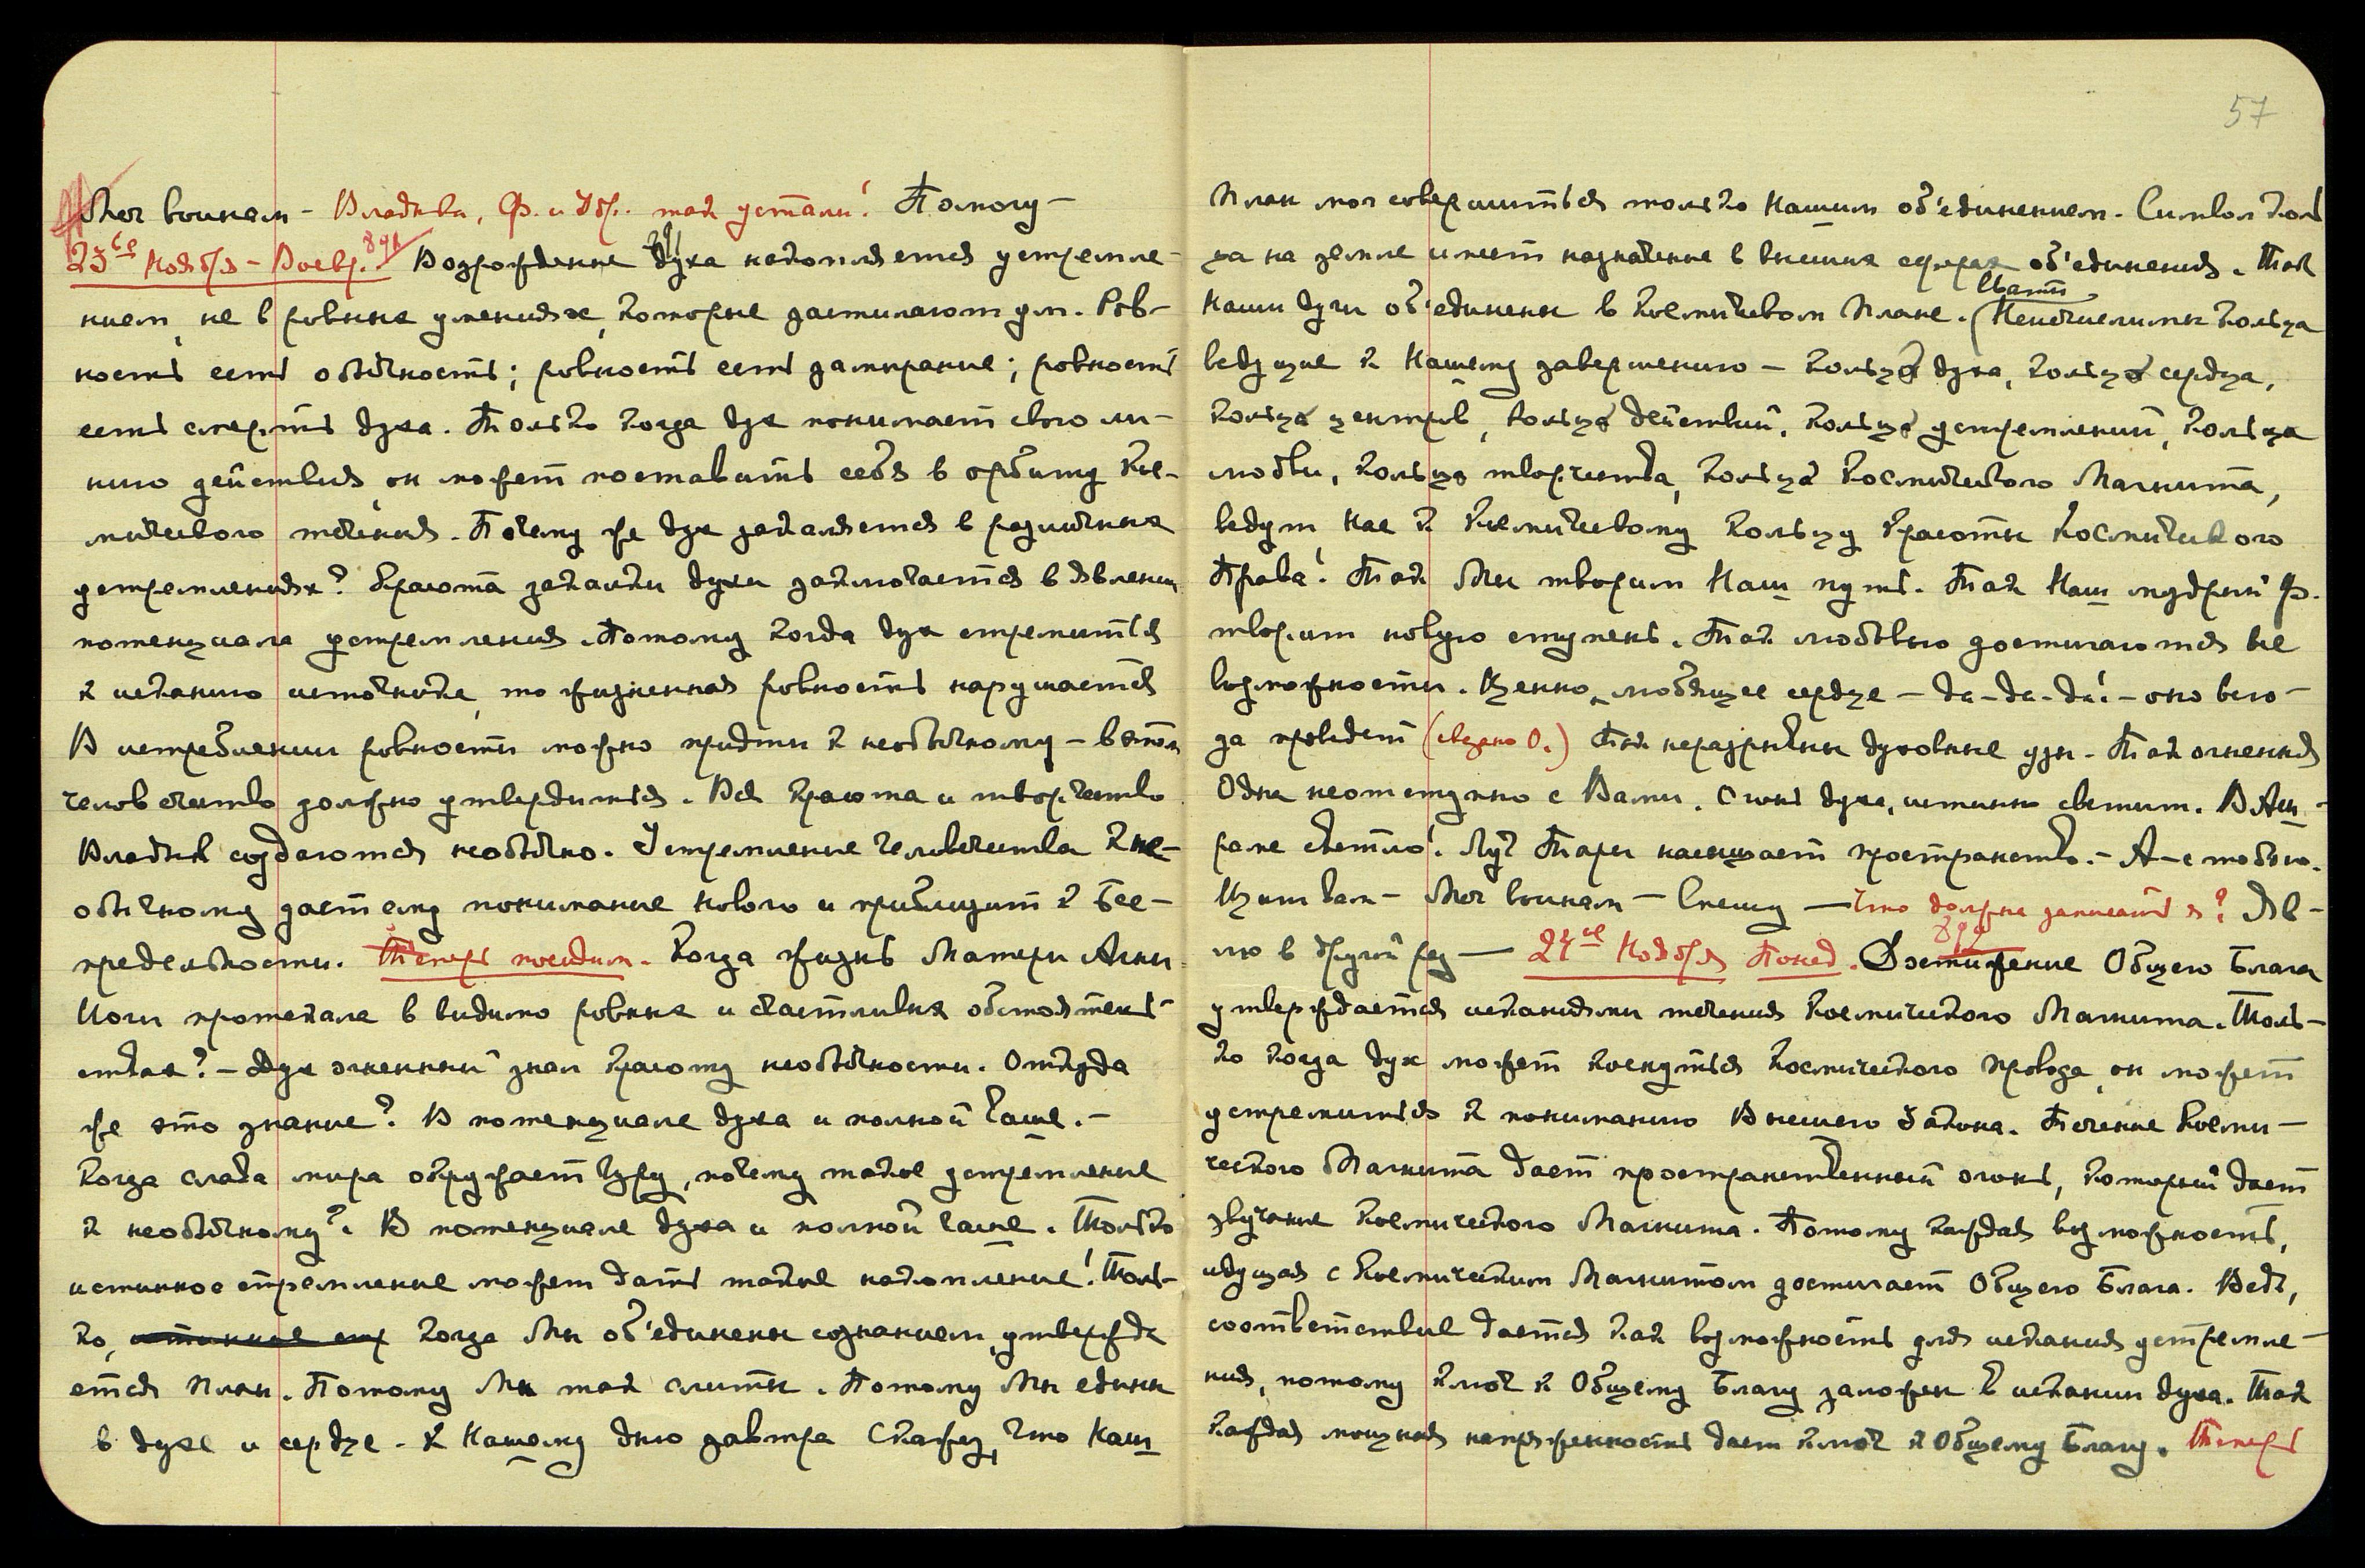 57
Меч воинам – Владыка, Ф. и Удр. так устали! Помогу –
23ье Ноября – Воскр. Возрождение духа накопляется устремле-
нием, не в ровных умениях, которые застилают ум. Ров-
ность есть обычность; ровность есть замирание; ровность
есть смерть духа. Только когда дух понимает свою ли-
нию действия, он может поставить себя в орбиту Кос-
мического течения. Почему же дух закаляется в различных
устремлениях? Красота закалки духа заключается в явлении
потенциала устремления. Потому когда дух стремится
к исканию источника, то жизненная ровность нарушается
В истреблении ровности можно придти к необычному – в этом
человечество должно утвердиться. Вся красота и творчество
Владык создаются необычно. Устремление человечества к не-
обычному дает ему понимание нового и приблизит к Бес-
предельности. Теперь посидим. Когда жизнь Матери Агни
Йоги протекала в видимо ровных и счастливых обстоятель-
ствах? – Дух огненный знал красоту необычности. Откуда
же это знание? В потенциале духа и полной Чаше. –
Когда слава мира окружает Гуру, почему такое устремление
к необычному? В потенциале духа и полной чаше. Только
истинное стремление может дать такие накопления! Толь-
ко, когда Мы об'единены сознанием, утвержда
ется План. Потому Мы так слиты. Потому Мы едины
в духе и сердце. К Нашему дню завтра Скажу, что Наш
План мог совершиться только Нашим об'единением. Символ коль
ца на земле имеет назначение в высших сферах об'единения. Так
Наши духи об'единены в Космическом Плане. (Неисчислимы кольца
ведущие к Нашему завершению – кольца духа, кольца сердца,
кольца центров, кольца действий, кольца устремлений, кольца
любви, кольца творчества, кольца Космического Магнита,
ведут Нас к Космическому кольцу Красоты Космического
Права! Так Мы творим Наш путь. Так Наш мудрый Ф.
творит новую ступень. Так любовью достигаются все
возможности. Ценно любящее сердце – да-да-да! – оно всю-
да проведет (сказано О.) Так неразрывны духовные узы. Так огненная
Одна неотступно с Вами. Огонь духа, истинно светит. В Аш-
раме светло! Луч Тары насыщает пространство. – Я – с тобою.
Щит Вам – Меч воинам – Спешу – Что должна записать я? Яв-
лю в другой раз – 24ое Ноября Понед. Достижение Общего Блага
утверждается исканиями течения Космического Магнита. Толь-
ко когда дух может коснуться Космического провода, он может
устремиться к пониманию Высшего Закона. Течение Косми-
ческого Магнита дает пространственный огонь, который дает
звучание Космического Магнита. Потому каждая возможность,
идущая с Космическим Магнитом достигает Общего Блага. Ведь,
соответствие дается как возможность для искания устремле-
ния, потому ключ к Общему Благу заложен в искании духа. Так
каждая мощная напряженность дает ключ к Общему Благу. Теперь